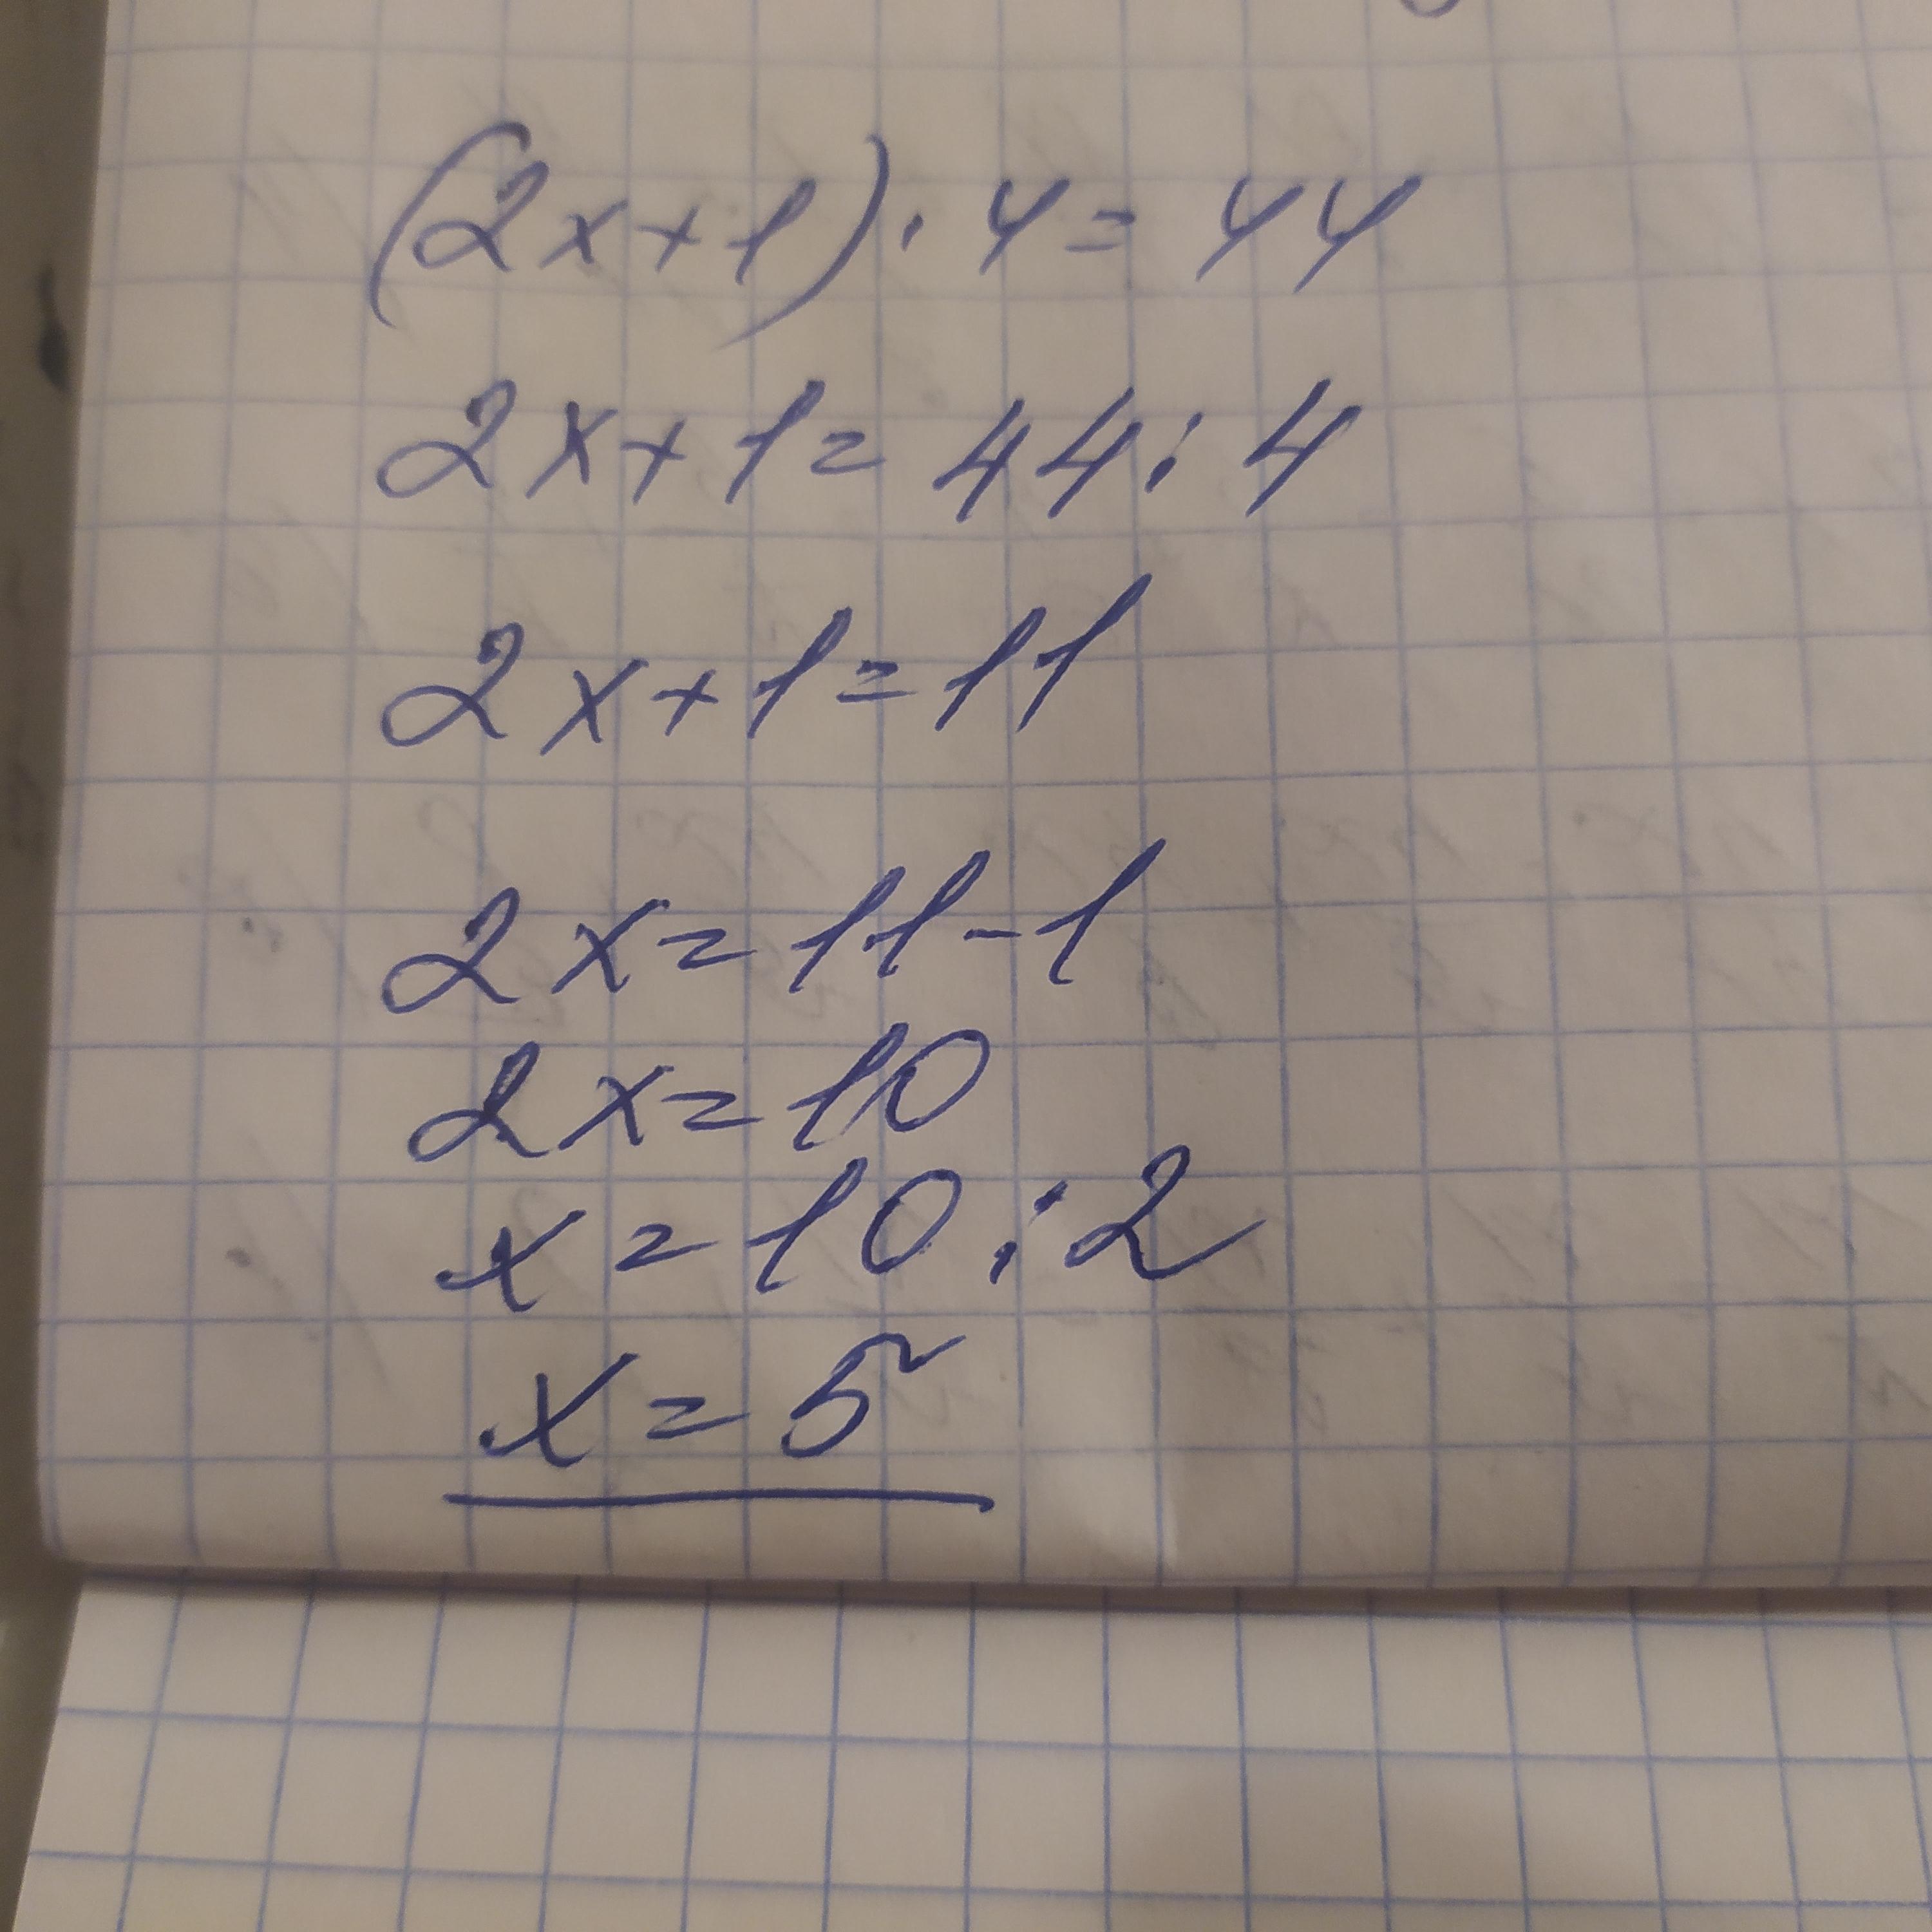 (2x+1)·4=44
2x+1=44:4
2x+1=11
2x=11-1
2x=10
x=10:2
x=5